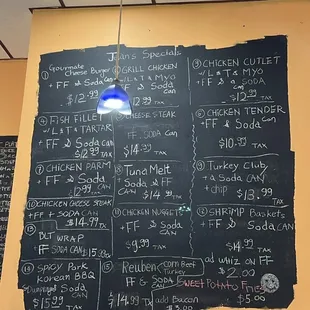 Juan's Specials
① Gourmate
Cheese Burger
+ FF & Soda
CAN
$12.99
GRILL CHICKEN
w/ L & T & MYO
+ FF & SODA
CAN
12.99
TAX
③ CHICKEN CUTLET
w/ L & T & MYO
+ FF & a SODA
CAN
$12.99
TAX
④ FISH FILLET
w/ L & T & TARTAR
FF & Soda
CAN
$12.99
TAX
CHEESE STEAK
FF & SODA
CAN
$14.99
TAX
⑥ CHICKEN TENDER
+ FF & Soda
CAN
$10.99
TAX
⑦ CHICKEN PARM
+ FF & Soda
CAN
12.99
TAX
⑧ Tuna Melt
+ Soda & FF
CAN
$14.99
TAX
⑨ Turkey Club
+ a Soda CAN
+ chip
$13.99
TAX
⑩ CHICKEN CHEESE STEAK
+ FF + SODA CAN
$14.99
TAX
⑪ CHICKEN NUGGETS
+ FF & SODA CAN
$9.99
TAX
⑫ SHRIMP Baskets
+ FF & Soda CAN
$14.99
TAX
⑬ BLT WRAP
FF & SODA CAN
$15.99
TAX
⑭ Spicy Pork
Korean BBQ
Soda CAN
$15.99
TAX
⑮ Reuben
Corn Beef
Turkey
FF & SODA
CAN
$14.99
TAX
add Bacon
$3.00
ad whiz ON FF
$2.00
SWEET POTATO Fries
$5.00